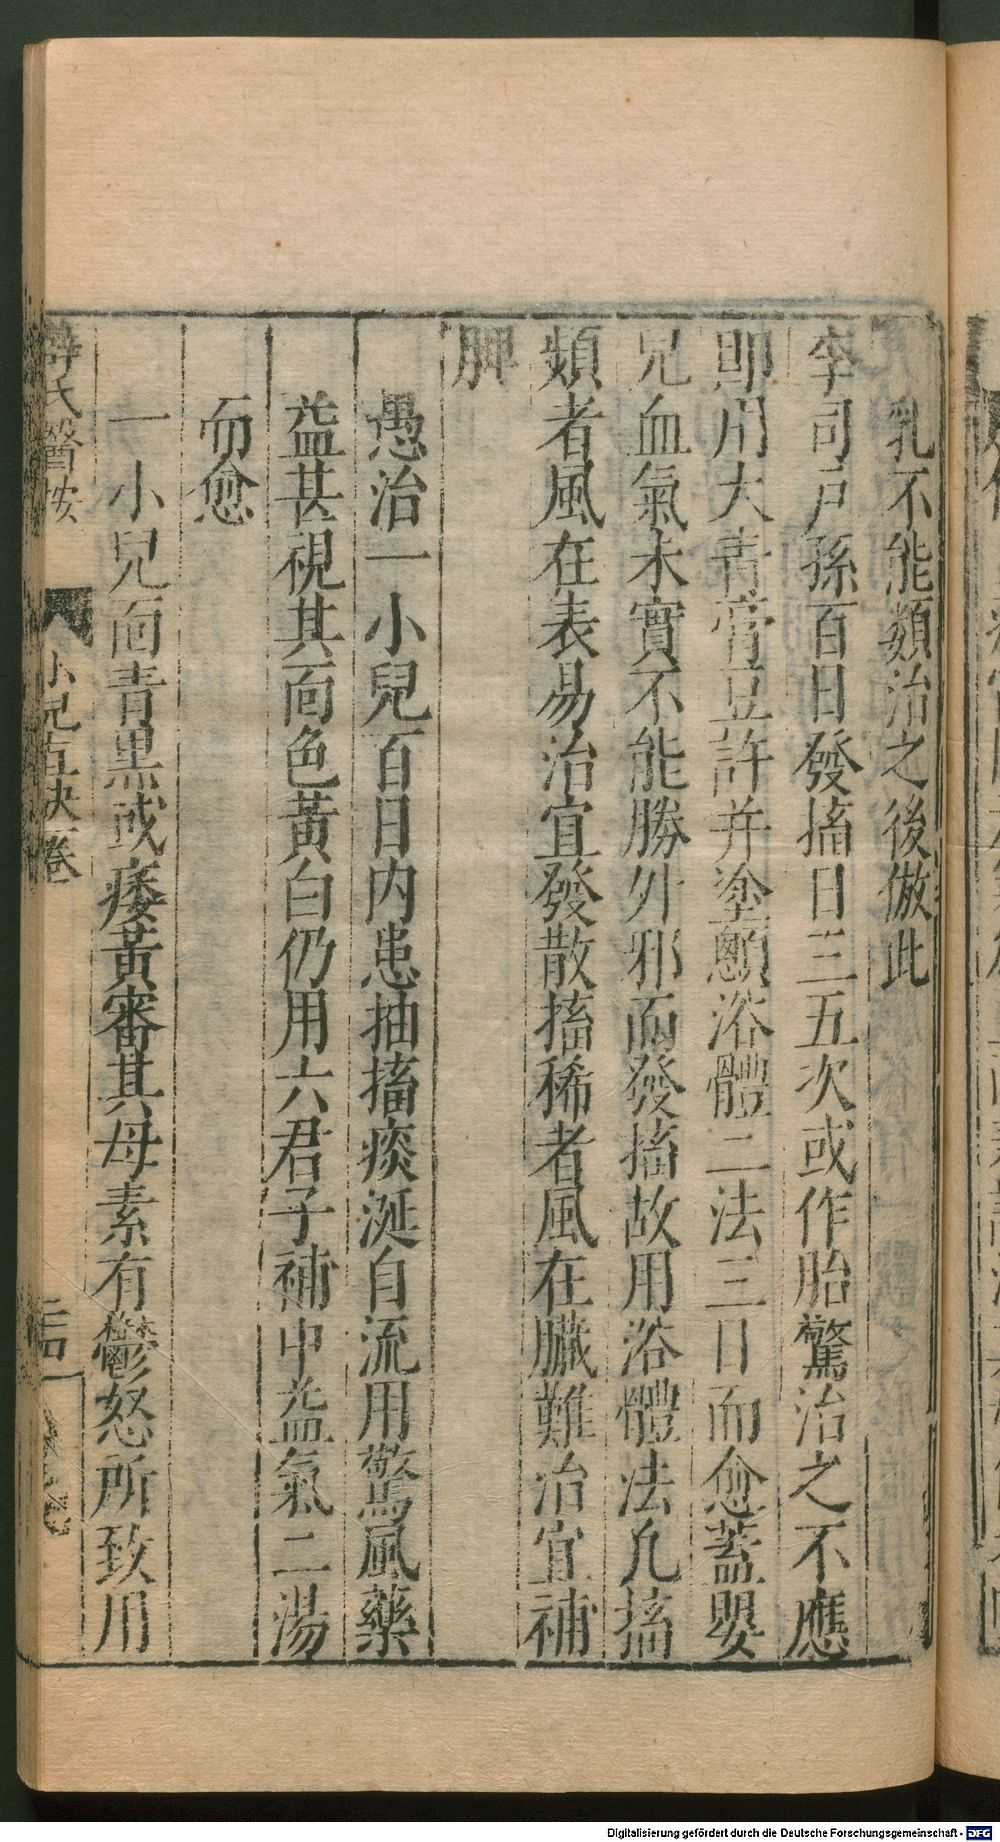 乳不能類治之後倣此
李司戶孫百日發搐日三五次或作胎驚治之不應
即用大青膏豆許并塗顖浴體二法三日而愈蓋嬰
兒血氣未實不能勝外邪而發搐故用浴體法凢搐
頻者風在表易治宜發散搐稀者風在臟難治宜補
脾
愚治一小兒百日內患抽搐痰涎自流用驚風藥
益甚視其面色黃白仍用六君子補中益氣二湯
而愈
一小兒面青黑或痿黃審其母素有鬱怒所致用
薛氏醫按
小兒直訣卷一
Digitalisierung gefördert durch die Deutsche Forschungsgemeinschaft - DFG